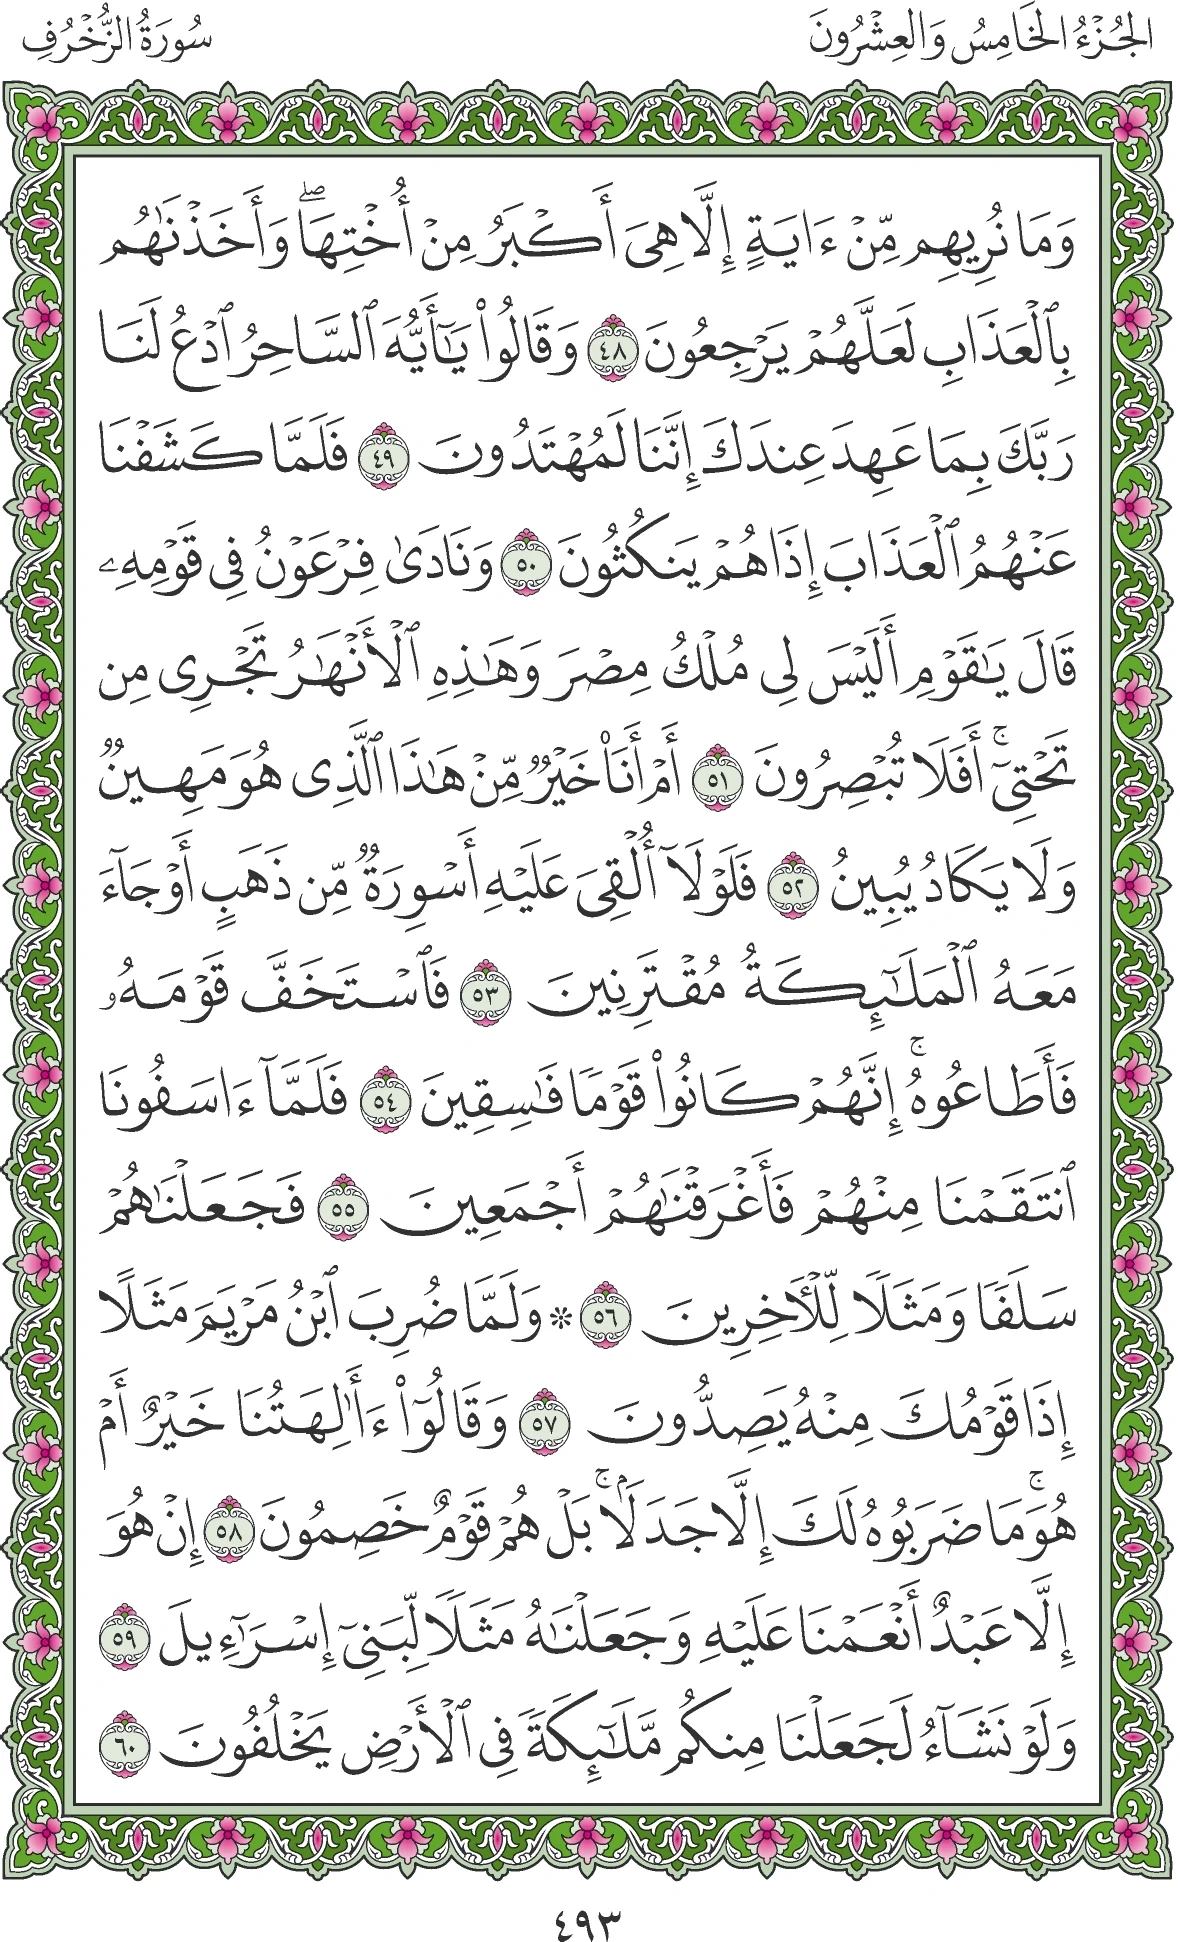 الجُزْءُ الخَامِسُ وَالعِشْرُونَ
سُورَةُ الزُّخْرُفِ
وَمَا نُرِيهِم مِّنْ ءَايَةٍ إِلَّا هِىَ أَكْبَرُ مِنْ أُخْتِهَاۖ وَأَخَذْنَٰهُم
بِٱلْعَذَابِ لَعَلَّهُمْ يَرْجِعُونَ ٤٨ وَقَالُوا۟ يَٰٓأَيُّهَ ٱلسَّاحِرُ ٱدْعُ لَنَا
رَبَّكَ بِمَا عَهِدَ عِندَكَ إِنَّنَا لَمُهْتَدُونَ ٤٩ فَلَمَّا كَشَفْنَا
عَنْهُمُ ٱلْعَذَابَ إِذَا هُمْ يَنكُثُونَ ٥٠ وَنَادَىٰ فِرْعَوْنُ فِى قَوْمِهِۦ
قَالَ يَٰقَوْمِ أَلَيْسَ لِى مُلْكُ مِصْرَ وَهَٰذِهِ ٱلْأَنْهَٰرُ تَجْرِى مِن
تَحْتِىٓۚ أَفَلَا تُبْصِرُونَ ٥١ أَمْ أَنَا۠ خَيْرٌ مِّنْ هَٰذَا ٱلَّذِى هُوَ مَهِينٌ
وَلَا يَكَادُ يُبِينُ ٥٢ فَلَوْلَآ أُلْقِىَ عَلَيْهِ أَسْوِرَةٌ مِّن ذَهَبٍ أَوْ جَآءَ
مَعَهُ ٱلْمَلَٰٓئِكَةُ مُقْتَرِنِينَ ٥٣ فَٱسْتَخَفَّ قَوْمَهُۥ
فَأَطَاعُوهُۚ إِنَّهُمْ كَانُوا۟ قَوْمًا فَٰسِقِينَ ٥٤ فَلَمَّآ ءَاسَفُونَا
ٱنتَقَمْنَا مِنْهُمْ فَأَغْرَقْنَٰهُمْ أَجْمَعِينَ ٥٥ فَجَعَلْنَٰهُمْ
سَلَفًا وَمَثَلًا لِّلْءَاخِرِينَ ٥٦ ۞ وَلَمَّا ضُرِبَ ٱبْنُ مَرْيَمَ مَثَلًا
إِذَا قَوْمُكَ مِنْهُ يَصِدُّونَ ٥٧ وَقَالُوٓا۟ ءَأَٰلِهَتُنَا خَيْرٌ أَمْ
هُوَۚ مَا ضَرَبُوهُ لَكَ إِلَّا جَدَلًۢاۚ بَلْ هُمْ قَوْمٌ خَصِمُونَ ٥٨ إِنْ هُوَ
إِلَّا عَبْدٌ أَنْعَمْنَا عَلَيْهِ وَجَعَلْنَٰهُ مَثَلًا لِّبَنِىٓ إِسْرَٰٓءِيلَ ٥٩
وَلَوْ نَشَآءُ لَجَعَلْنَا مِنكُم مَّلَٰٓئِكَةً فِى ٱلْأَرْضِ يَخْلُفُونَ ٦٠
٤٩٣